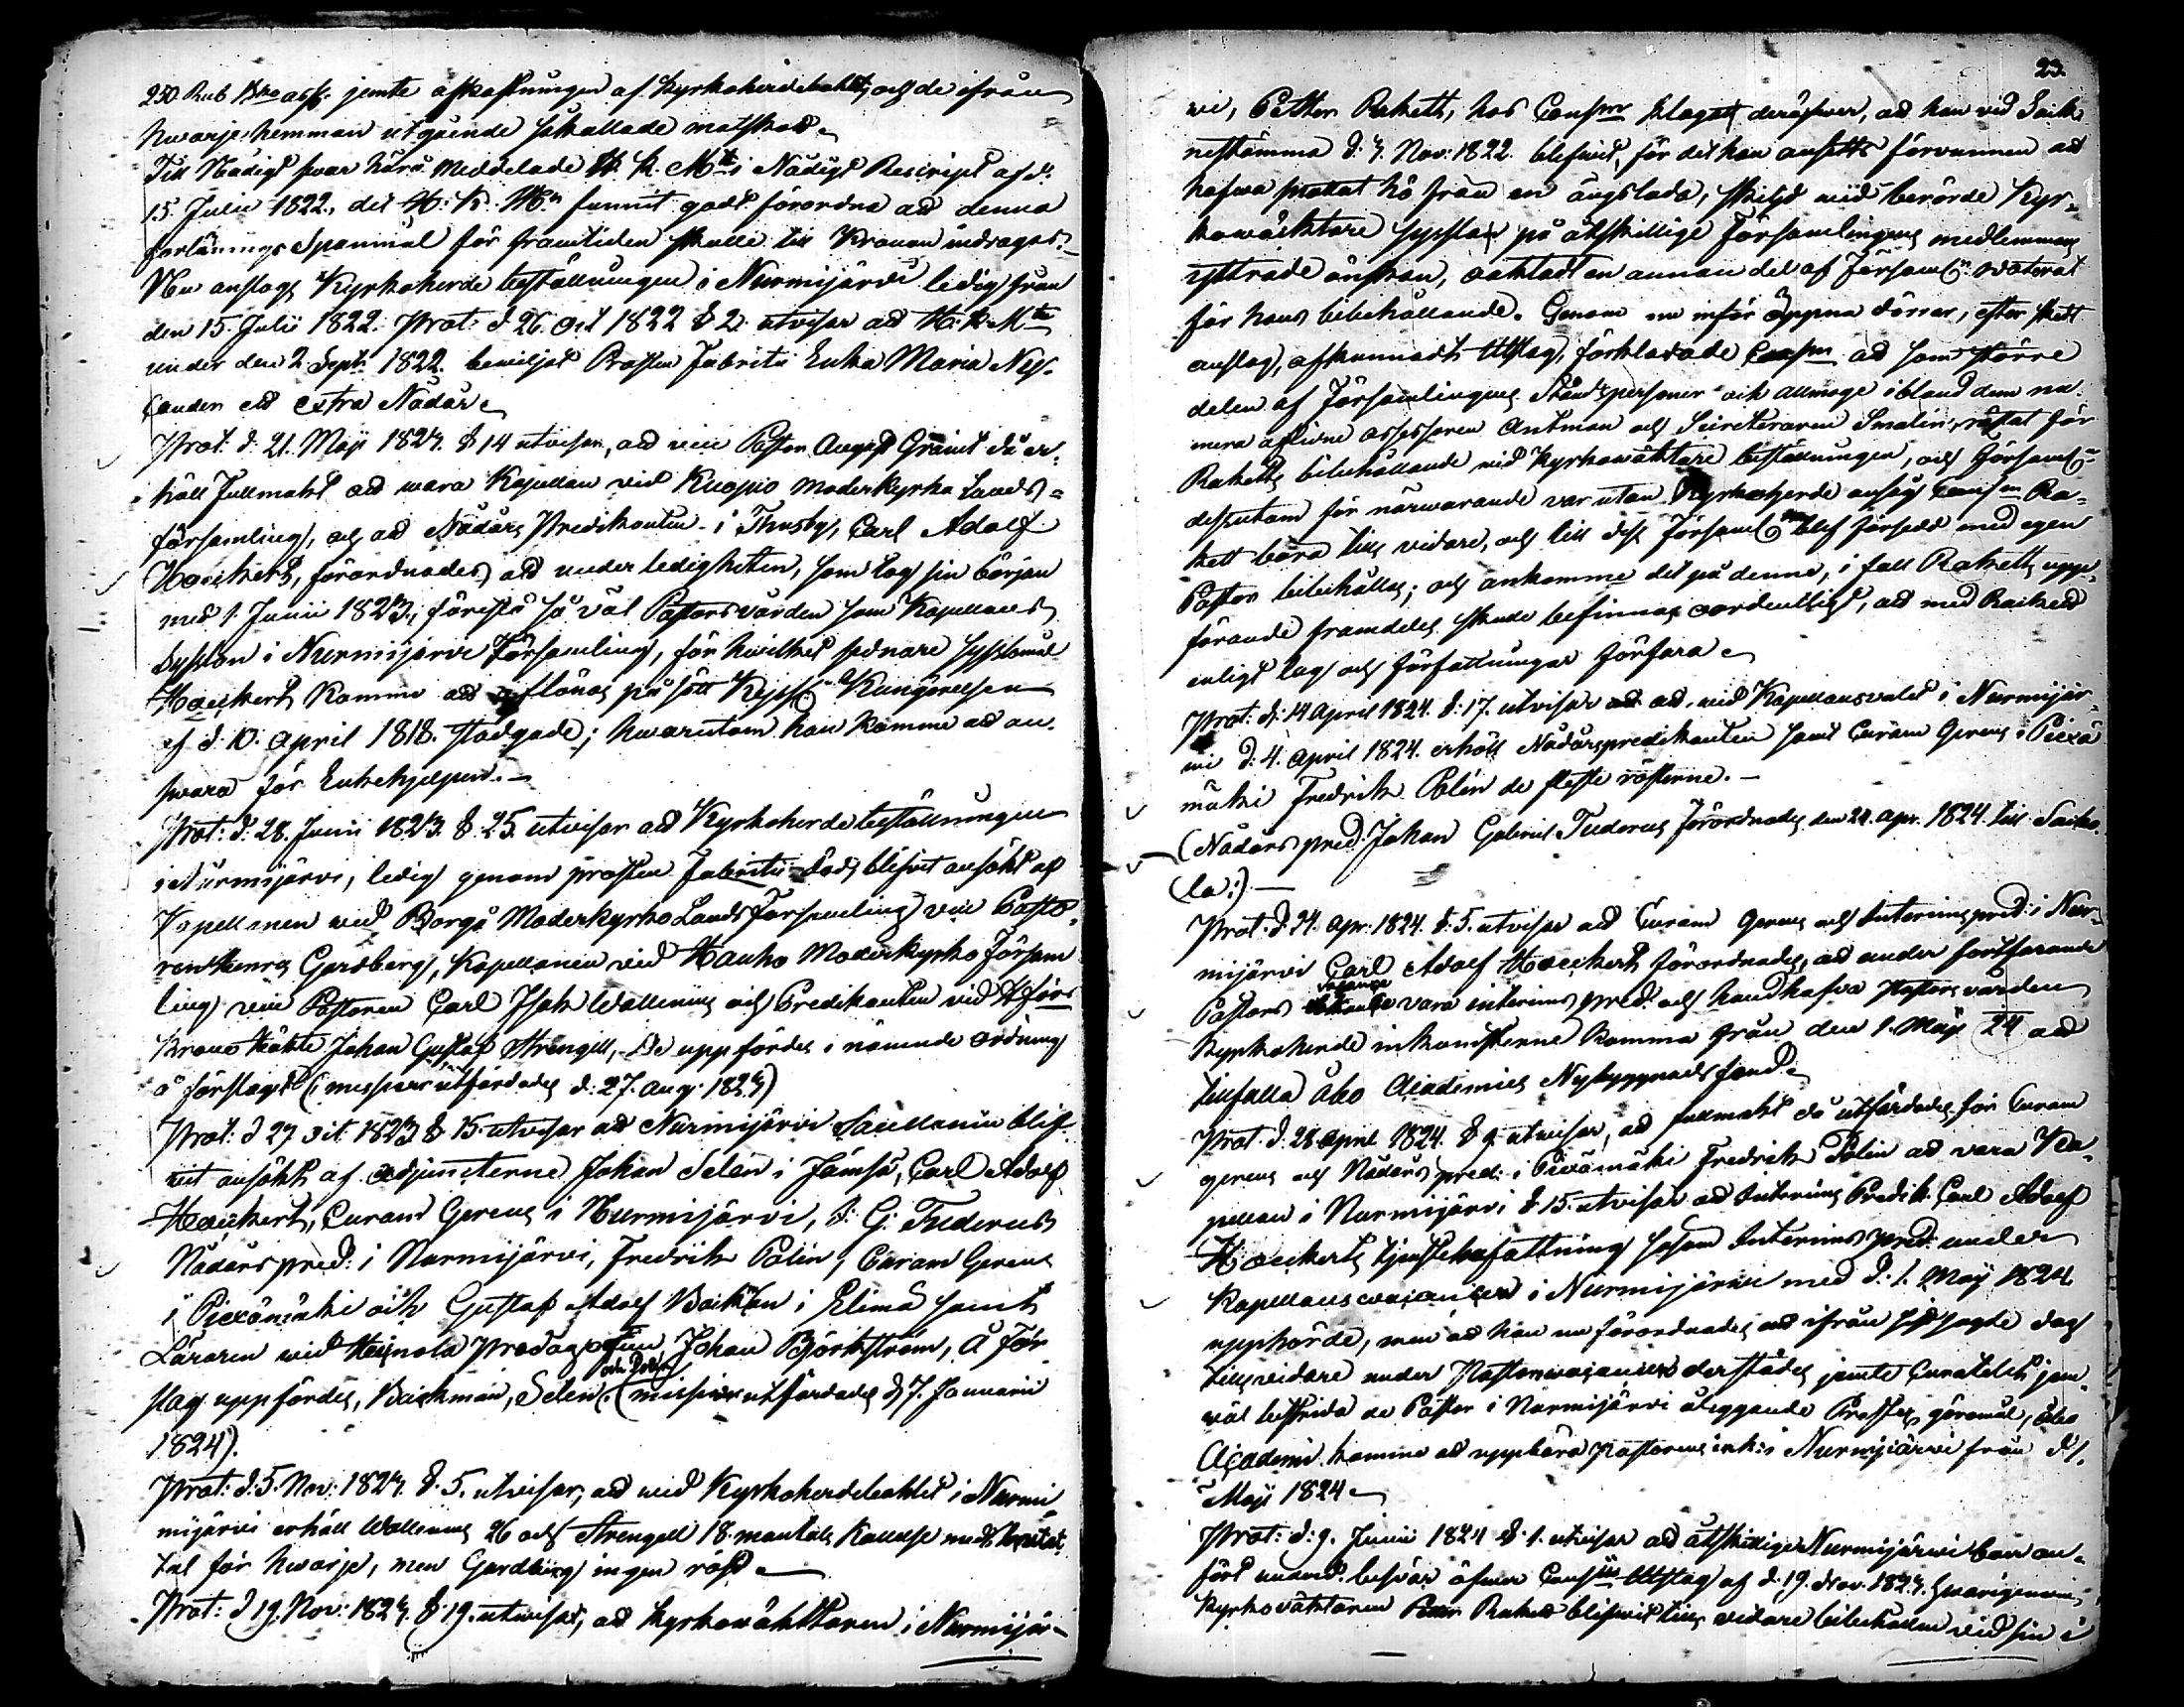 250 Rub Bco ass. jemte afkastningen af Kyrkoherdebohlet, och de ifrån
hwarje hemman utgående såkallade matskott.
Till Nådigt svar härå meddelade H. K. Mt i Nådigt Rescript af d.
15 Julii 1822, det H. K. Mt funnit godt förordna att denna
förlänings Spanmål för framtiden skulle till Kronan indragas.
Nu anslogs Kyrkoherde beställningen i Nurmijärvi ledig från
den 15 Julii 1822. Prot. d 26 Oct 1822 § 2. utvisar att H. K. Mt
under den 2 Sept. 1822. beviljat Prosten Fabritii Enka Maria Ny-
lander ett extra Nådår.
Prot. d. 21. Maji 1823. § 14 utvisar, att vice Pastor August Granit då er-
höll Fullmakt att wara Kapellan vid Kuopio Moderkyrko Lands-
församling, och att Nådårs Predikanten i Thusby, Carl Adolf
Hoeckert, förordnades att under ledigheten, som tog sin början
med 1. Junii 1823, förestå så väl Pastorsvården som Kapellans
sysslan i Nurmijärvi Församling, för hvilket sednare sysslomål
Hoeckert komme att aflönas på sätt Kejserl. Kungörelsen
af d. 10. April 1818. stadgade; hwarutom han komme att an-
svara för Enkehjelpen.
Prot. d. 28. Junii 1823. § 25. utvisar att Kyrkoherde beställningen
i Nurmijärvi, ledig genom prosten Fabritii död, blifvit ansökt af
Kapellanen vid Borgå Moderkyrko Landsförsamling vice Pasto-
ren Henric Gerdberg, Kapellanen vid Hauho Moderkyrko Försam
ling vice Pastoren Carl Isak Wallenius och Predikanten vid H:fors
Krono Häkte Johan Gustaf Strengell, De uppfördes i nämnde ordning
å förslaget (missiver utfärdades d. 27. Aug. 1823)
Prot. d 29 Oct. 1823 § 15. utvisar att Nurmijärvi Sacellanie blif-
vit ansökt af adjuncterne Johan Selén i Jämsä, Carl Adolf
Hoeckert, Curam Gerens i Nurmijärvi, J. G. Tuderus
Nådårspred. i Nurmijärvi, Fredrik Polin, Curam Gerens
i Piexämäki och Gustaf Adolf Backman i Elimä samt
Läraren vid Heinola Predagogium, Johan Björkström, å För
slag uppfördes, Backman, Selén och Polin (missiver utfärdades d 7. Januarii
1824).
Prot. d. 5. Nov. 1823. § 5. utvisar, att vid Kyrkoherdevalet i Nurmi-
mijärvi erhöll Wallenius 26 och Strengell 18. mantals kallelse
tal för hwarje, men Gerdberg ingen röst.
Prot. d 19. Nov. 1823. § 19. utvisar, att kyrkowäktaren i Nurmijär-
23.
vi, Petter Rakett, hos Consm klagat deröfver, att han vid Sock-
nestämma d. 9. Nov. 1822. blifvit, för det han ansetts förvunnen att
hafwa snattat hö från en ängslada, skiljd vid berörde Kyr-
kowäktare sysslan på åtskillige Församlingens medlemmars
yttrade önskan, oaktadt en annan del af Församl:n voterat
för hans bibehållande. Genom nu inför öppna dörrar, efter skett
anslag, afkunnadt Utslag, förklarade Consm att som större
delen af Församlingens Ståndspersoner och allmoge ibland dem nu-
mera aflidne assessoren Antman och Secreteraren Smalin, röstat för
Raketts bibehållande vid kyrkowäktare beställningen, och Församl:n
dessutom för närwarande var utan Kyrkoherde ansåg Consm Ra-
kett böra tills vidare, och till dess Församl:n blef försedd med egen
Pastor bibehållas; och ankomme det på denne, i fall Raketts uppe-
förande framdeles skulle befinnas oordentligt, att med Rakett
enligt lag och författningar förfara.
Prot: d: 14 April 1824. §. 17. utvisar att vid Kapellansvalet i Nurmijär-
vi d: 4. April 1824. erhöll Nådårspredikanten samt Curam Gerens i Piexä
mäki Fredrik Polin de fleste rösterne.
(Nådårs pred. Johan Gabriel Tuderus förordnades den 24. Apr. 1824. till Saiko
la:)
Prot. d. 24. Apr. 1824. §. 5. utvisar att Curam Gerens och Interimspred. i Nur-
mijärvi Carl Adolf Hoeckert förordnades, att under fortfarande
Pastors vacance vara interims pred. och handhafva Pastors vården
Kyrkoherde inkomsterne komma från den 1. Maji 24 att
tillfalla Åbo Academies Nybyggnads fond.
Prot. d. 28 April 1824. § 9 utvisar, att fullmakt då utfärdades för Curam
gerens och Nådårs pred. i Piexämäki Fredrik Polin att vara Ka-
pellan i Nurmijärvi § 15. utvisar att Interims Predik. Carl Adolf
Hoeckerts tjenstebefattning såsom Interims pred. under
Kapellans vacancen i Nurmijärvi med d. 1. Maj 1824
upphörde, men att han nu förordnades att ifrån sistsagde dag
tills vidare under Pastorsvacancen derstädes jemte Curatelet jem-
väl bestrida de Pastor i Nurmijärvi åliggande Presterl. göromål, Åbo
Academi komme att uppbära pastorens ink. i Nurmijärvi från d 1.
Maji 1824.
Prot. d. 9. Junii 1824 §. 1. utvisar att åtskillige Nurmijärvi boer an-
fört underd. besvär öfver Consm Utslag af d. 19. Nov. 1823. hvarigenom
kyrkoväktaren Petter Rakett blifvit tills vidare bibehållen vid sin